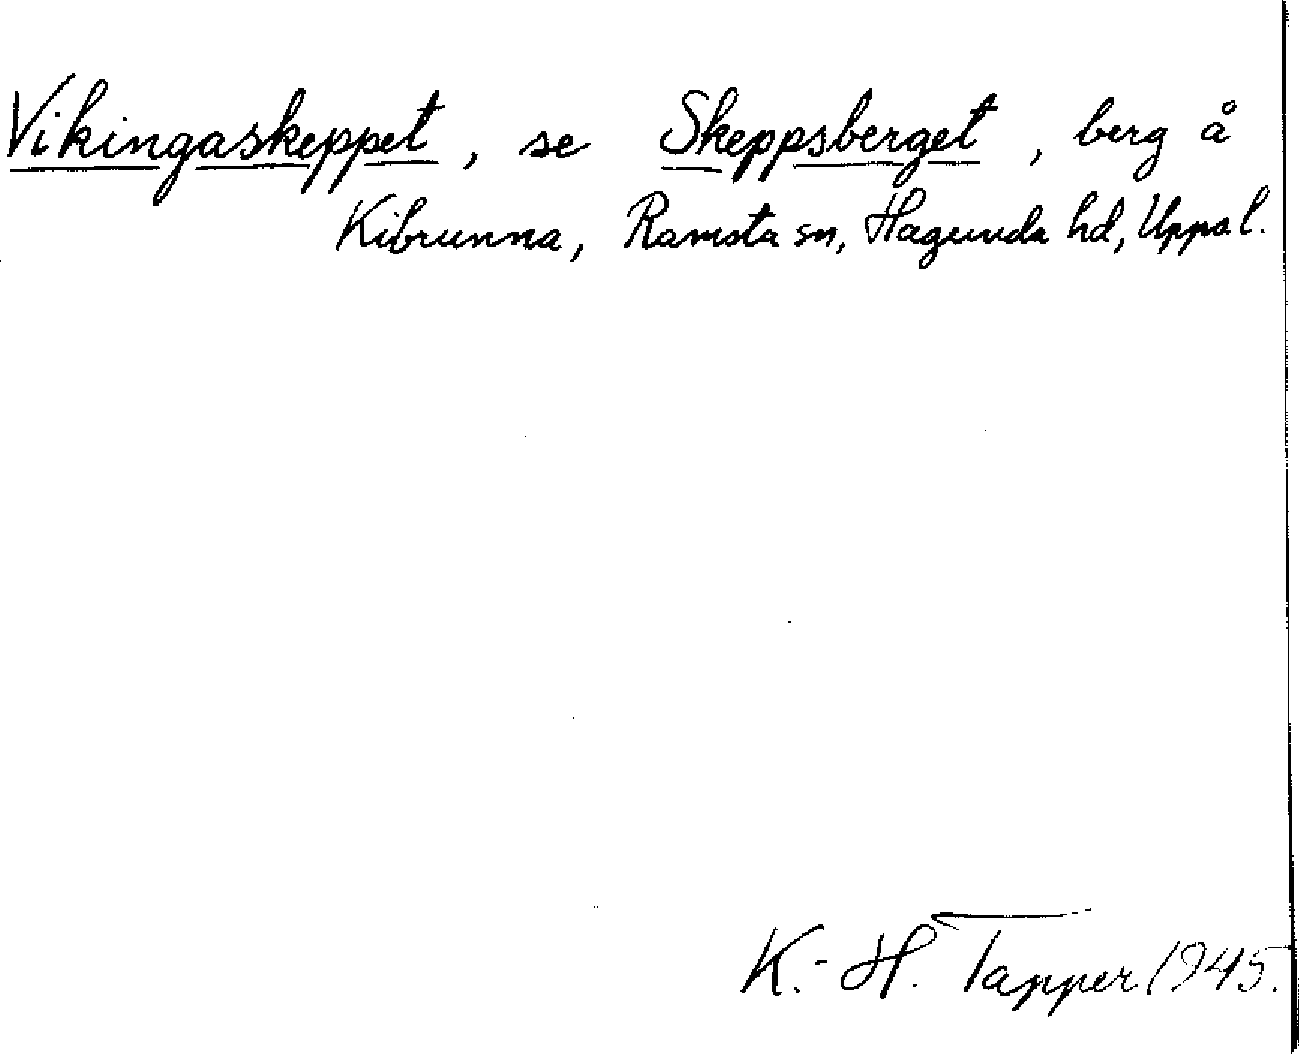 Vikingaskeppet, se Skeppsberget, berg å
Kibrunna, Ramsta sn, Hagunda hd, Uppsal.
K.-H. Tapper 1945.